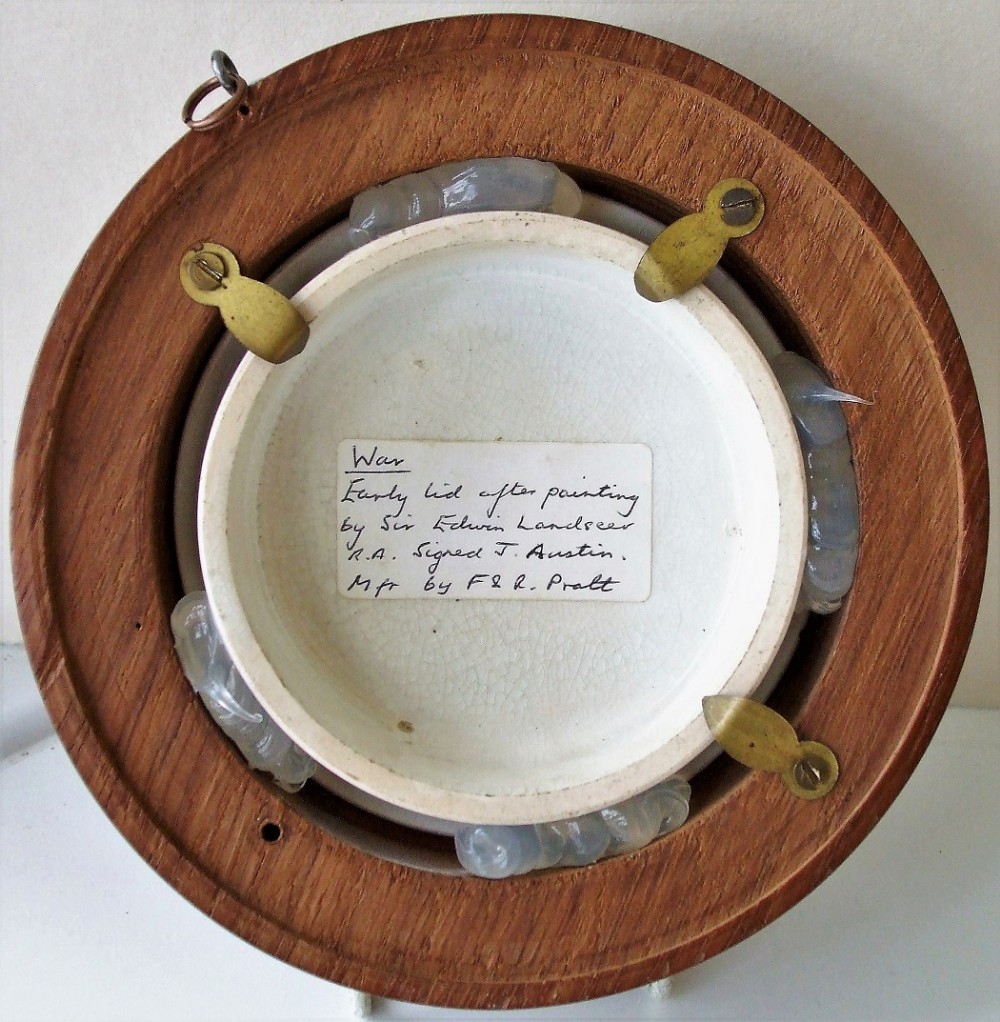 War
Early lid after painting
by Sir Edwin Landseer
R.A. Signed J. Austin.
Mfr by F & R. Pratt